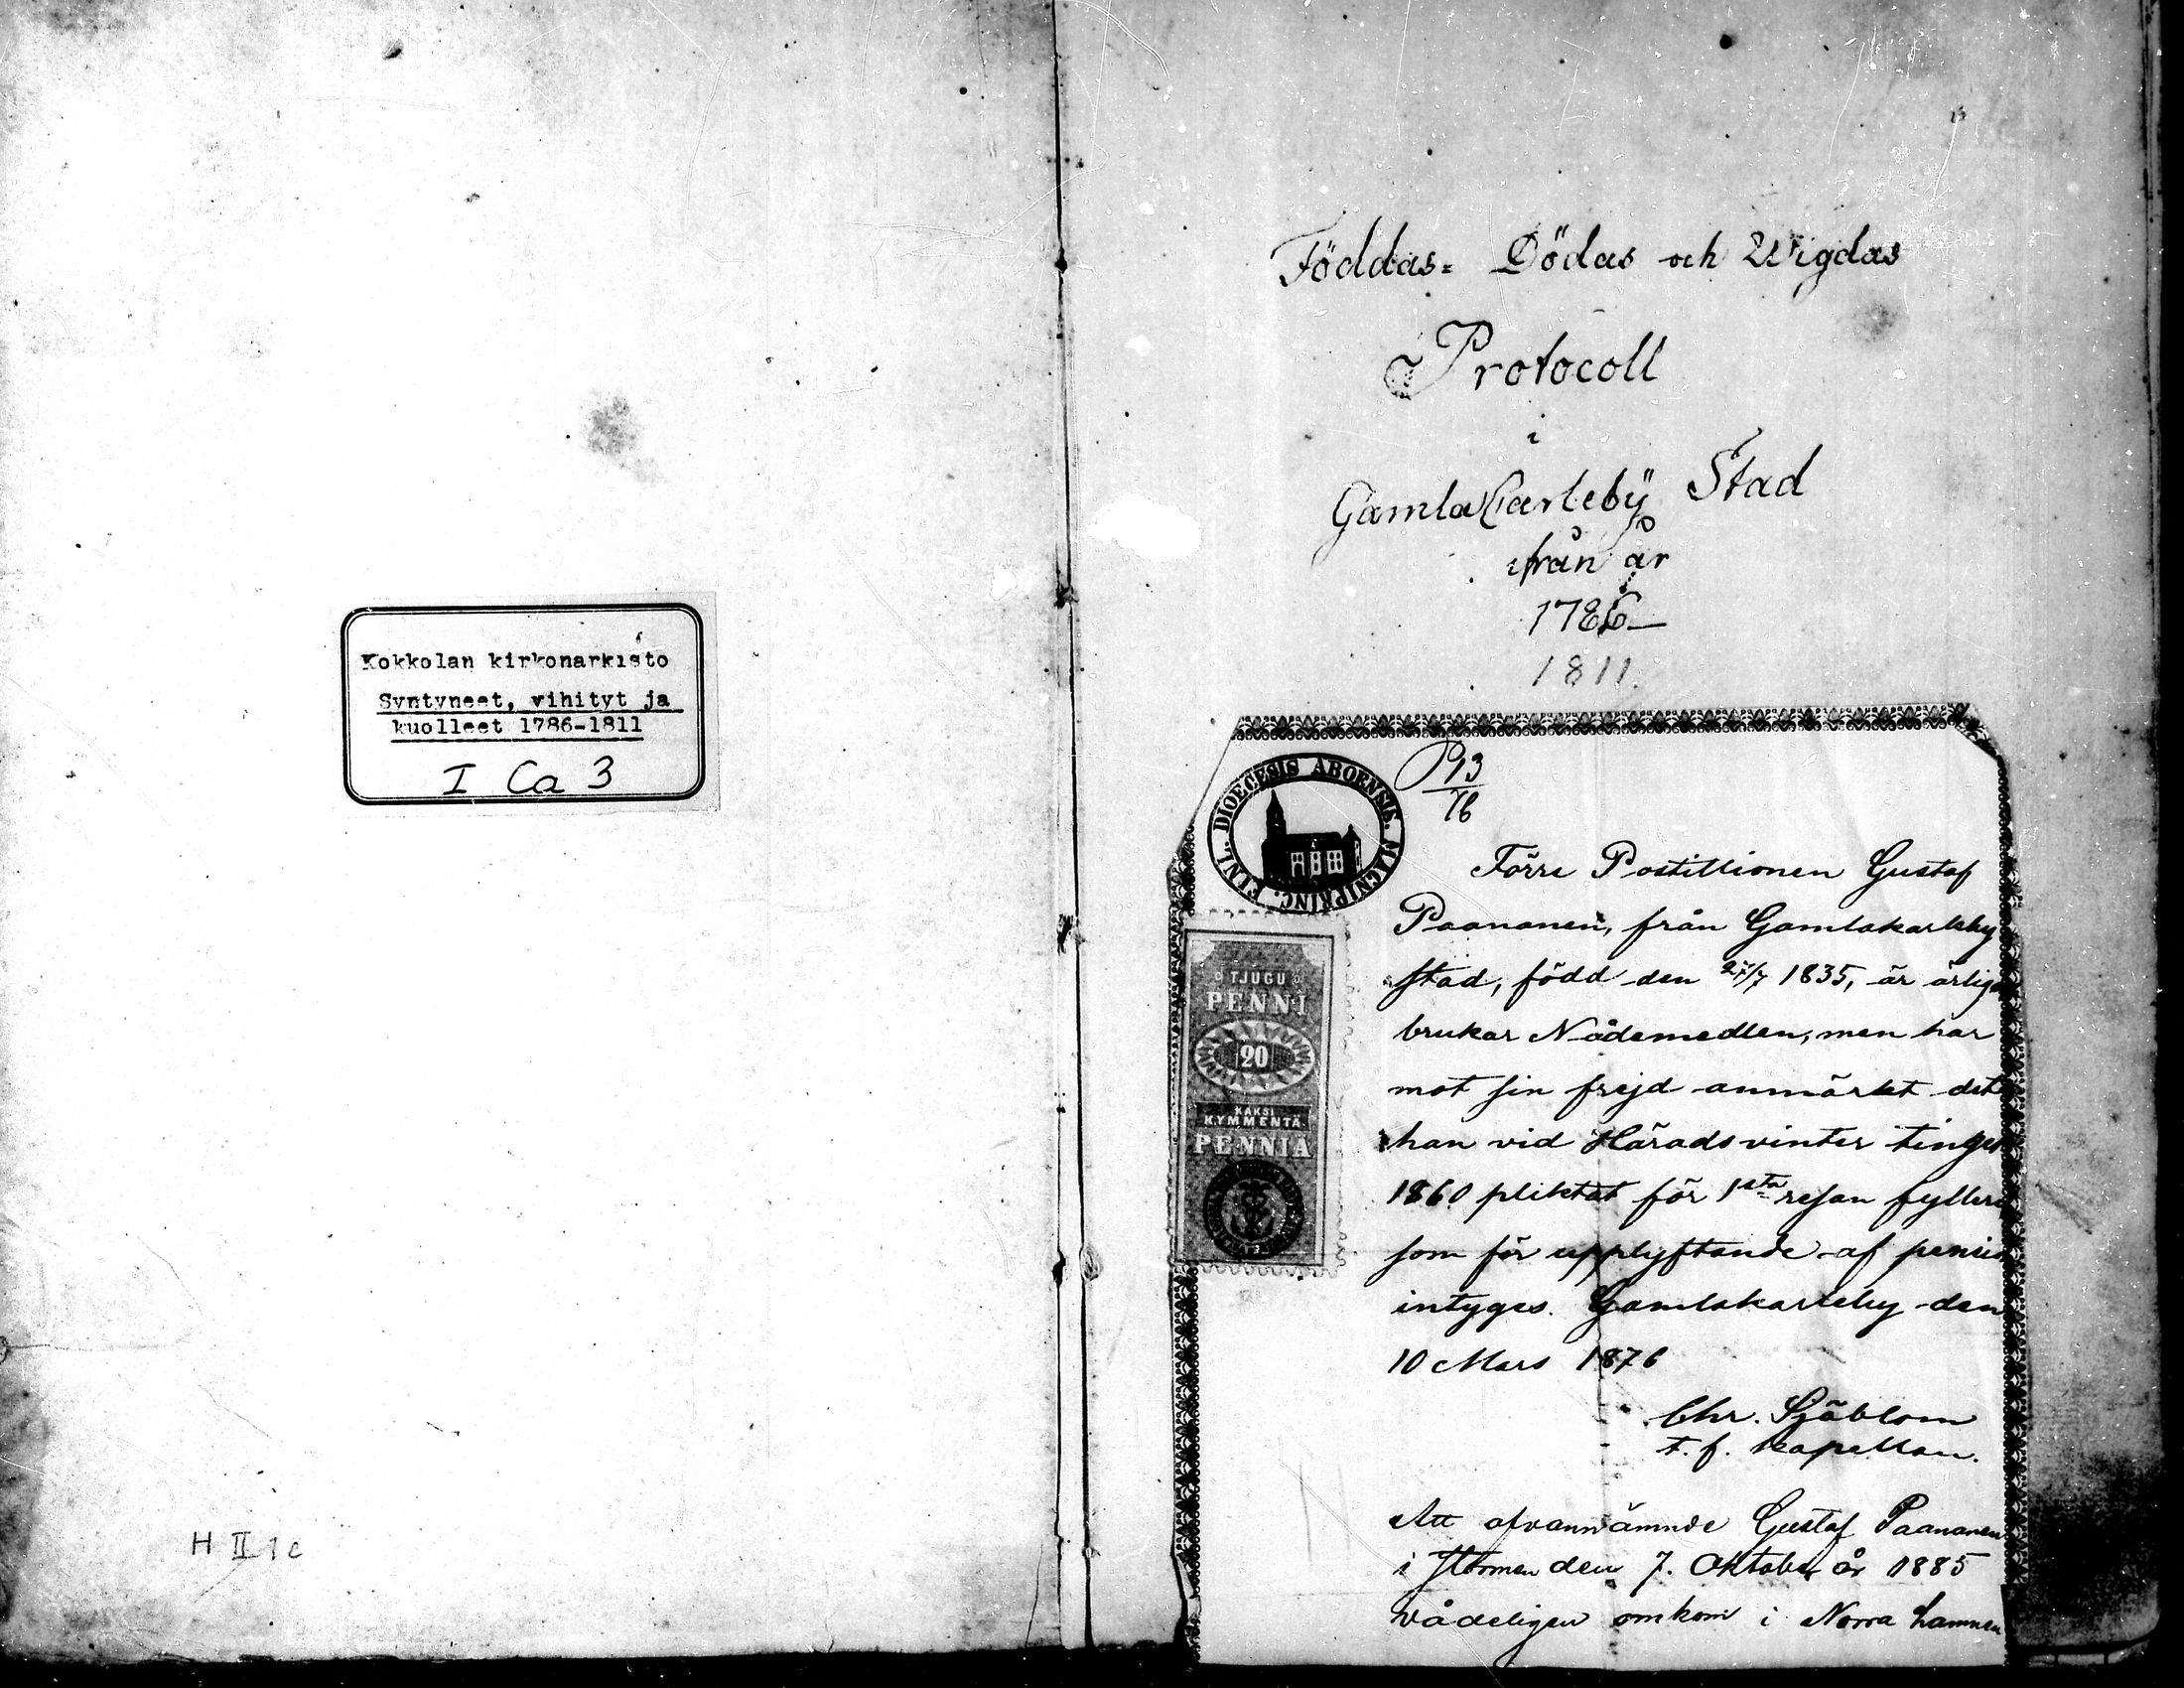 Kokkolan kirkonarkisto
Syntyneet, vihityt ja
kuolleet 1786-1811
I Ca 3
H II 1c
Föddas= Dödas och Wigdas
Protocoll
i
Gamla Carleby Stad
ifrån år
1786—
1811.
FINL. DIOECESIS ABOENSIS. MAGNIPRINC.
P 13
76
TJUGU
PENNI
20
KAKSI
KYMMENTÄ
PENNIÄ
Förre Postillionen Gustaf
Paananen, från Gamlakarleby
stad, född den 27/7 1835, är ärlig
brukar Nådemedlen, men har
mot sin frejd anmärkt det
han vid Häradsvinter tinget
1860 pliktat för 1sta resan fylleri
som för upplyftande af pension
intyges. Gamlakarleby den
10 Mars 1876
Chr. Sjöblom
t. f. kapellan.
Att ofvannämnde Gustaf Paananen
i stormen den 7. Oktober år 1885
vådeligen omkom i Norra hamnen